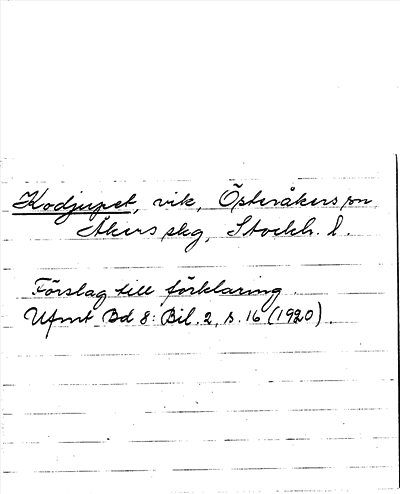 Kodjupet, vik, Österåkers sn,
Åkers skg, Stockh. l.
Förslag till förklaring.
Ufmt Bd 8: Bil. 2, s. 16 (1920).